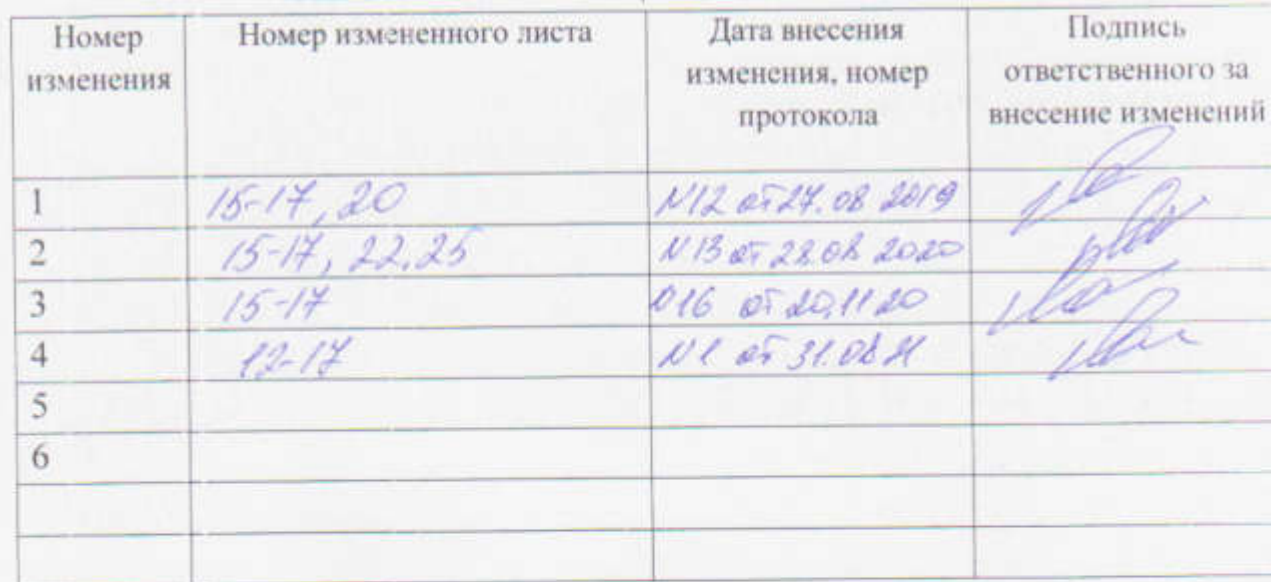 Номер изменения
Номер измененного листа
Дата внесения изменения, номер протокола
Подпись ответственного за внесение изменений
1 15-17, 20 N12 от 27.08 2019
2 15-17, 22,25 N13 от 28.08 2020
3 15-17 N16 от 20.11 20
4 12-17 N1 от 31.08
5
6